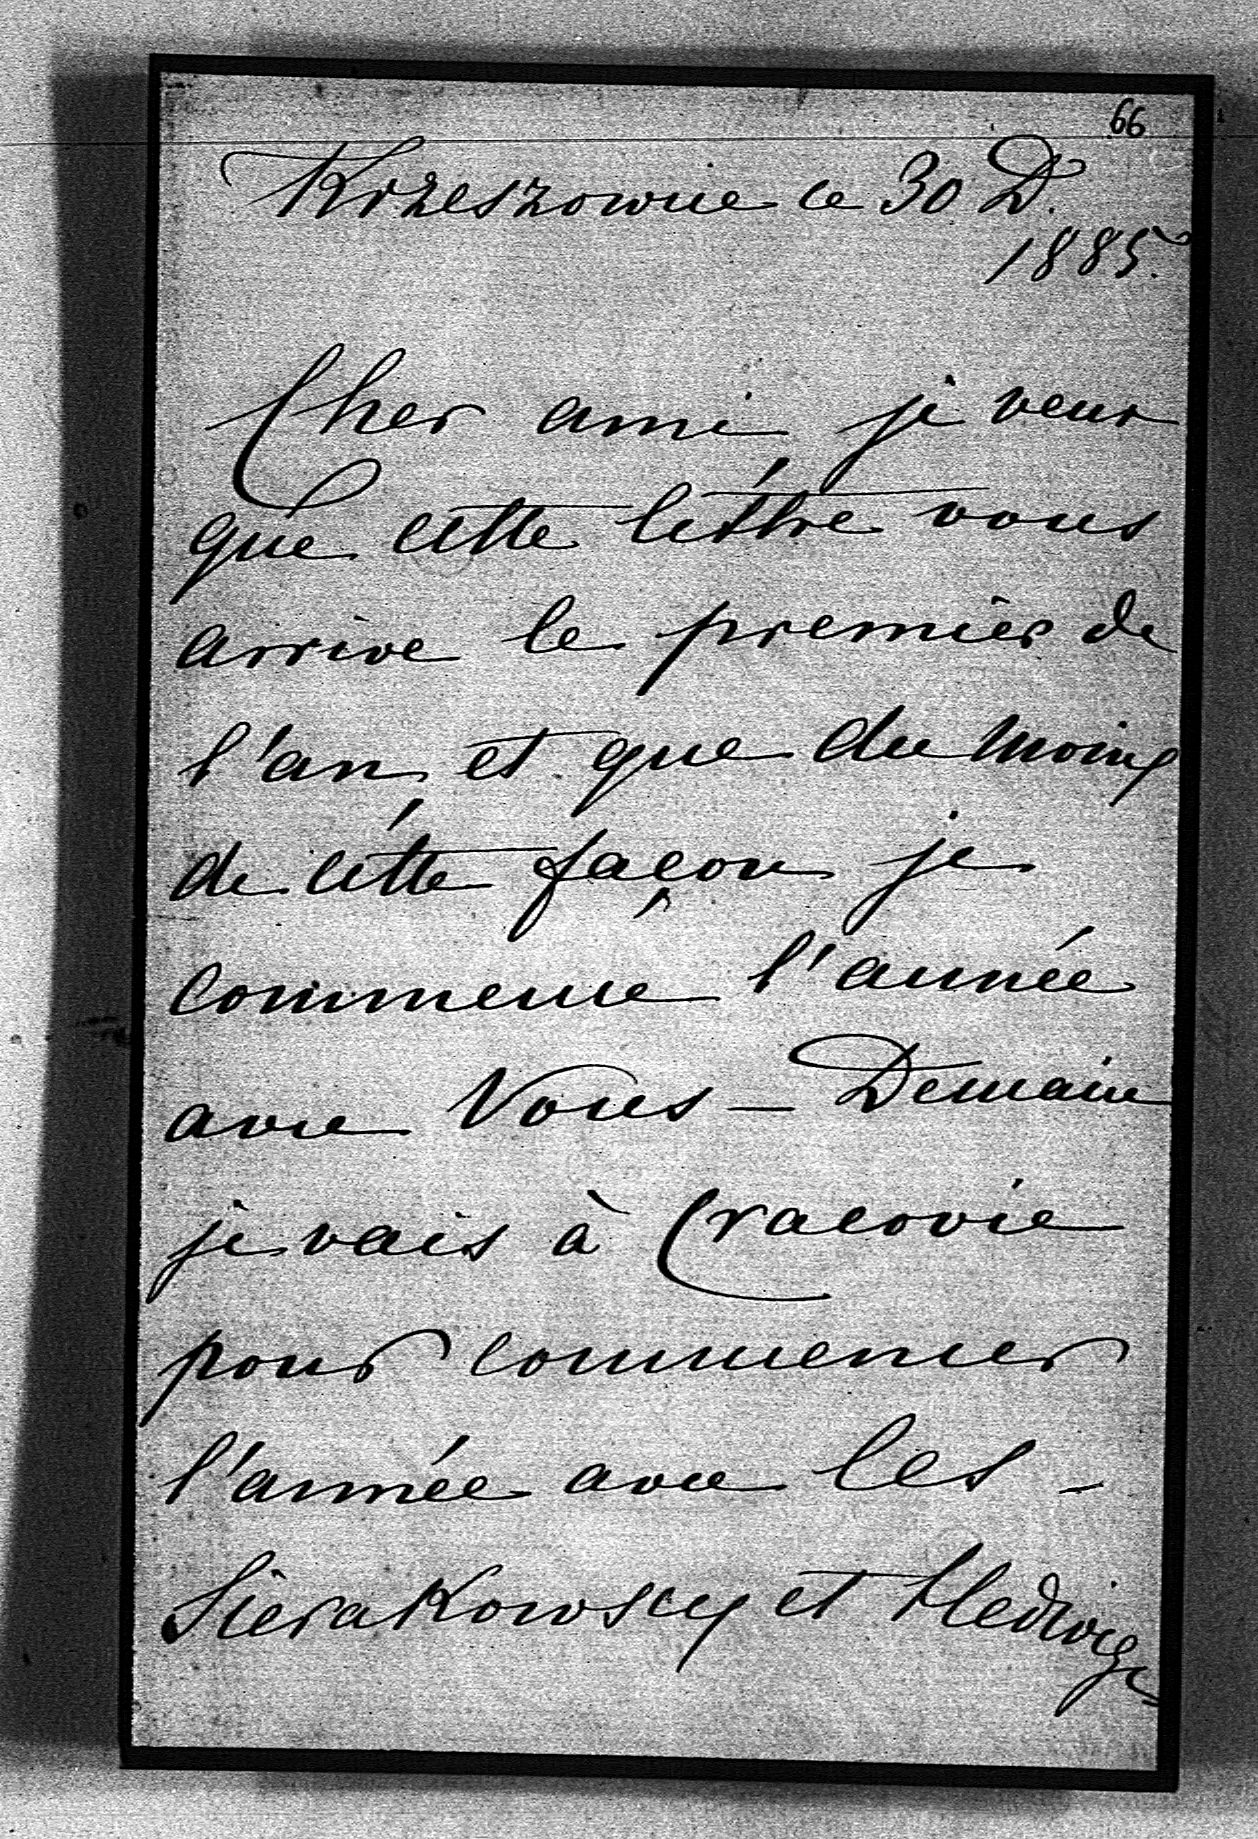 66
Krzeszowice le 30 D.
1885.
Cher ami je veux
que cette léttre vous
arrive le premier de
l'an et que du moins
de cétte façon je
commence l'année
avec Vous – Demain
je vais à Cracovie
pour commencer
l'année avec les –
Sierakowscy et Hedwige